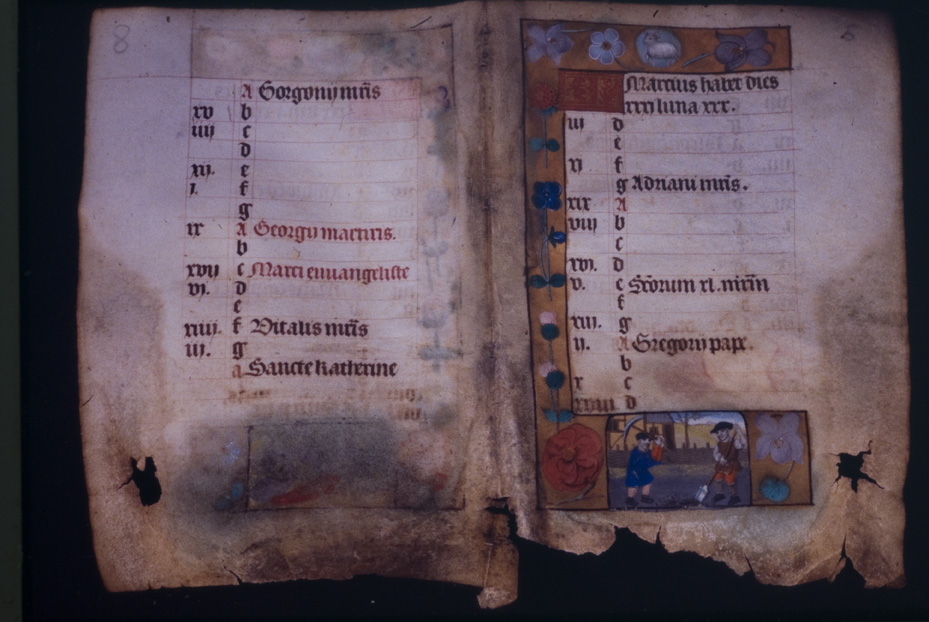 8
A Gorgonij mris
xv b
iiij c
d
xij. e
i. f
g
ix A Georgij martiris.
b
xvij c Marci euuangeliste
vi. d
e
xiiij. f Vitalis mris
iij. g
a Sancte katherine
Marcius habet dies
xxxi luna xxx.
iij d
e
xi f
g Adriani mris.
xix A
viij b
c
xvi. d
v. e Scorum xl. mrm
f
xiij. g
ij. A Gregorij pape.
b
x c
xviij d